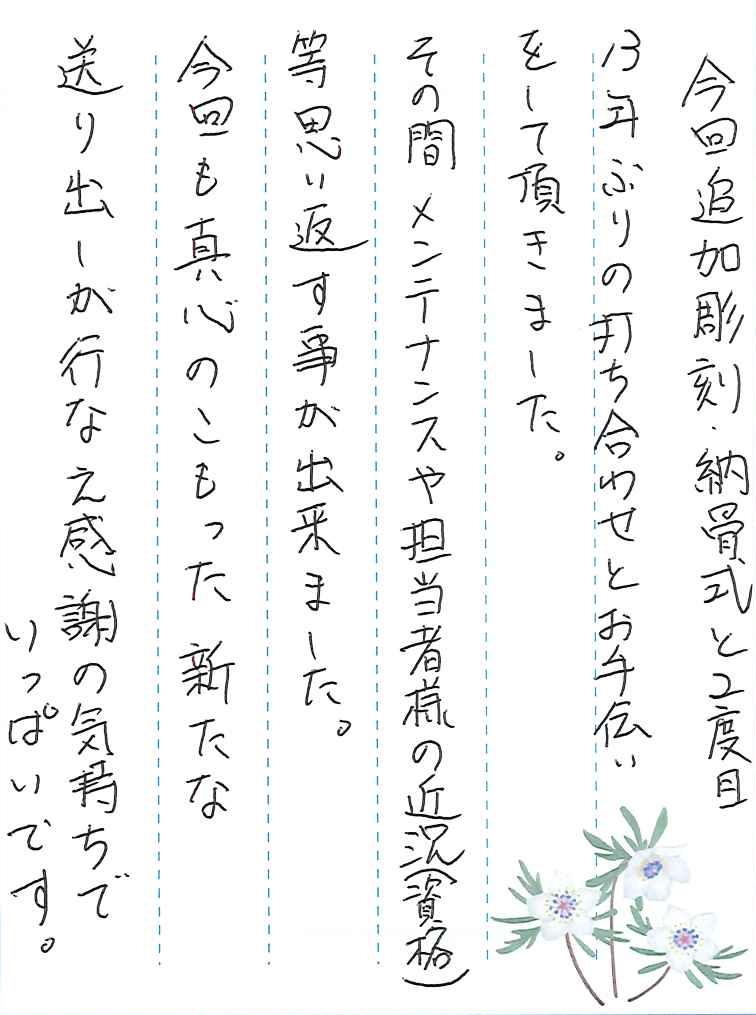 今回追加彫刻・納骨式と2度目
13年ぶりの打ち合わせとお手伝い
をして頂きました。
その間 メンテナンスや担当者様の近況(資格)
等思い返す事が出来ました。
今回も真心のこもった 新たな
送り出しが行なえ感謝の気持ちで
いっぱいです。